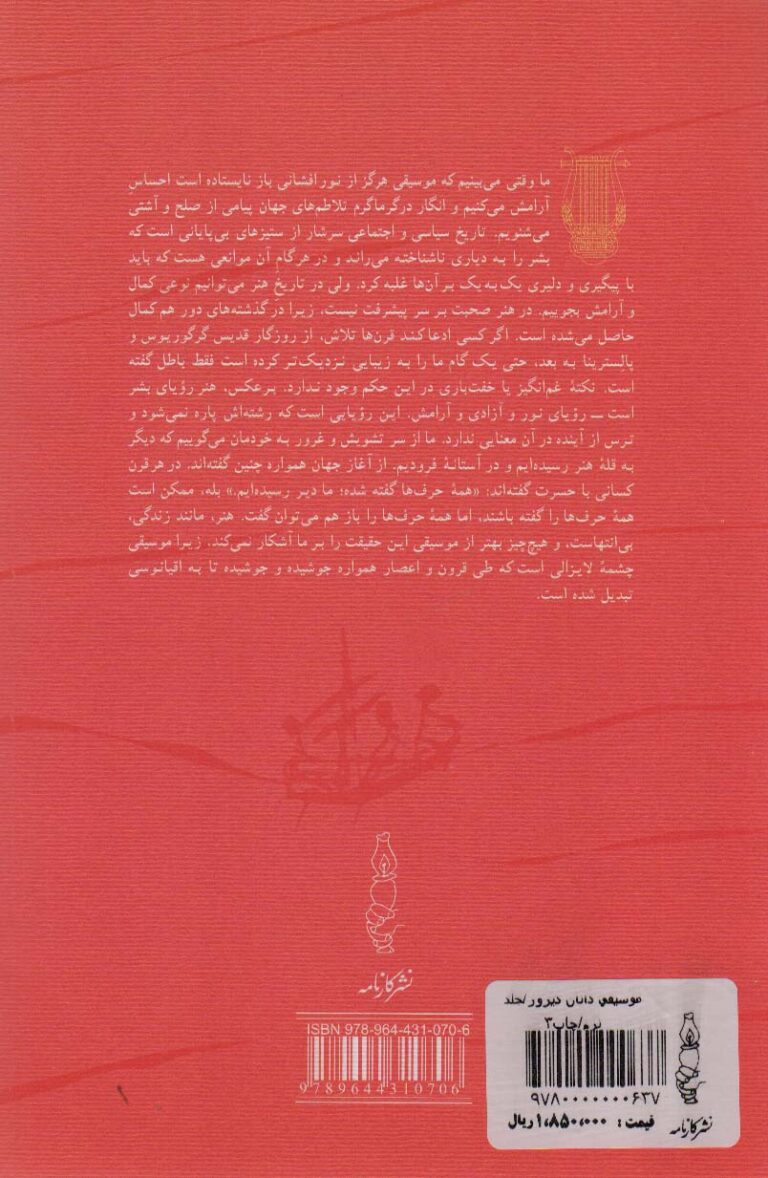 ما وقتی می‌بینیم که موسیقی هرگز از نورافشانی باز نایستاده است احساسِ
آرامش می‌کنیم و انگار در گرماگرم تلاطم‌های جهان پیامی از صلح و آشتی
می‌شنویم. تاریخ سیاسی و اجتماعی سرشار از ستیزهای بی‌پایانی است که
بشر را به دیاری ناشناخته می‌راند و در هر گامِ آن موانعی هست که باید
با پیگیری و دلیری یک به یک بر آن‌ها غلبه کرد. ولی در تاریخِ هنر می‌توانیم نوعی کمال
و آرامش بجوییم. در هنر صحبت بر سر پیشرفت نیست، زیرا در گذشته‌های دور هم کمال
حاصل می‌شده است. اگر کسی ادعا کند قرن‌ها تلاش، از روزگار قدیس گرگوریوس و
پالسترینا به بعد، حتی یک گام ما را به زیبایی نزدیک‌تر کرده است فقط باطل گفته
است. نکتهٔ غم‌انگیز یا خفت‌باری در این حکم وجود ندارد. برعکس، هنر رؤیای بشر
است ــ رؤیای نور و آزادی و آرامش. این رؤیایی است که رشته‌اش پاره نمی‌شود و
ترس از آینده در آن معنایی ندارد. ما از سر تشویش و غرور به خودمان می‌گوییم که دیگر
به قلهٔ هنر رسیده‌ایم و در آستانهٔ فرودیم. از آغاز جهان همواره چنین گفته‌اند. در هر قرن
کسانی با حسرت گفته‌اند: «همهٔ حرف‌ها گفته شده؛ ما دیر رسیده‌ایم.» بله، ممکن است
همهٔ حرف‌ها را گفته باشند، اما همهٔ حرف‌ها را باز هم می‌توان گفت. هنر، مانند زندگی،
بی‌انتهاست، و هیچ‌چیز بهتر از موسیقی این حقیقت را بر ما آشکار نمی‌کند، زیرا موسیقی
چشمهٔ لایزالی است که طی قرون و اعصار همواره جوشیده و جوشیده تا به اقیانوسی
تبدیل شده است.
نشر کارنامه
ISBN 978-964-431-070-6
9789644310706
موسیقی دانان دیروز/جلد
نرم/چاپ۳
۹۷۸۰۰۰۰۰۰۰۶۳۷
قیمت: ۱،۸۵۰،۰۰۰ریال
نشر کارنامه